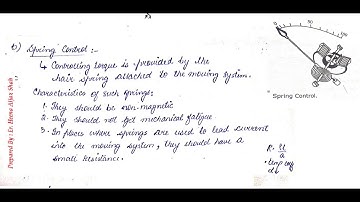 b) Spring Control :-
↳ Controlling torque is provided by the
hair spring attached to the moving system.
Characteristics of such springs:
1. They should be non-magnetic
2. They should not get mechanical fatigue
3. In places where springs are used to lead current
into the moving system, they should have a
small resistance.
0 50 100
Spring Control.
R = ρl
a
• temp
Prepared By : Er. Heena Alias Shah